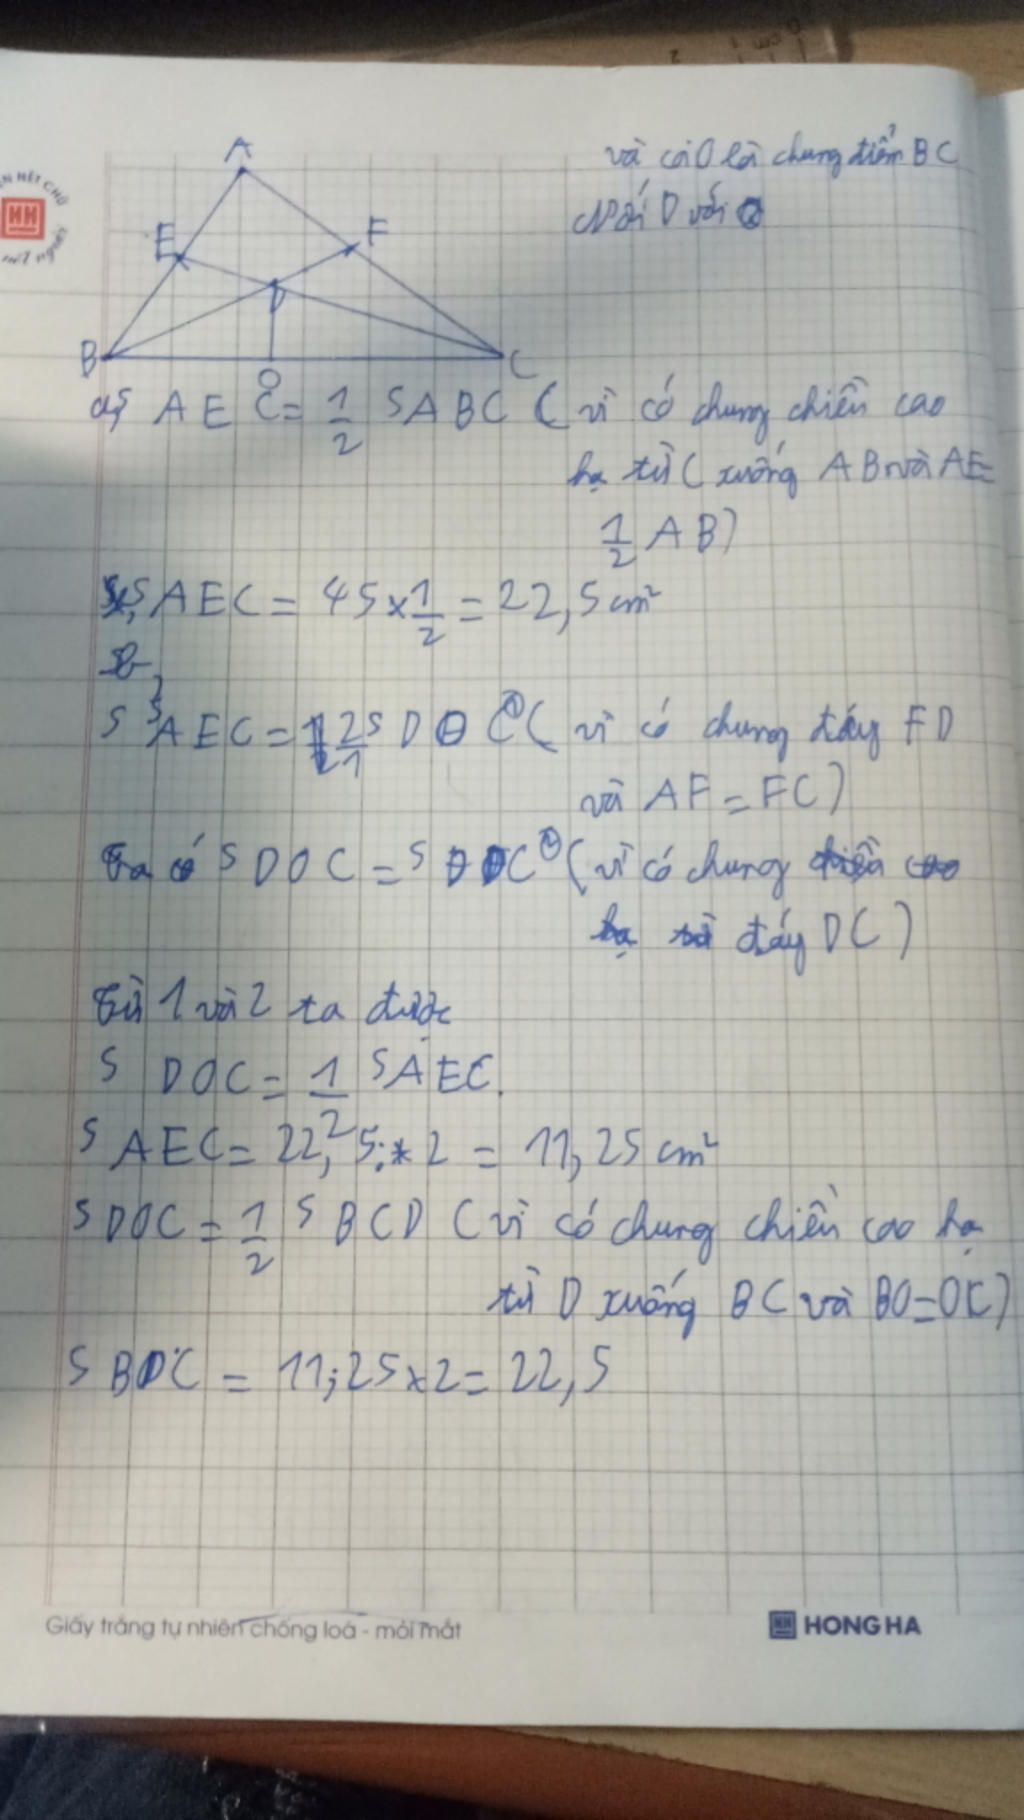 và coi O là chung điểm BC
Nối D với O
A
E
F
D
B
C
O
a, S AEC = 1/2 S ABC ( vì có chung chiều cao
hạ từ C xuống AB và AE =
1/2 AB)
S AEC = 45 x 1/2 = 22,5 cm²
S AEC = 2/1 S D C ① ( vì có chung đáy FD
và AF = FC)
Ta có S DOC = S D C ② ( vì có chung
đáy DC )
Từ 1 và 2 ta được
S DOC = 1/2 S AEC.
S AEC = 22,5 : 2 = 11,25 cm²
S DOC = 1/2 S BCD ( vì có chung chiều cao hạ
từ D xuống BC và BO=OC)
S BDC = 11,25 x 2 = 22,5
Giấy trắng tự nhiên chống loá - mỏi mắt
HONG HA